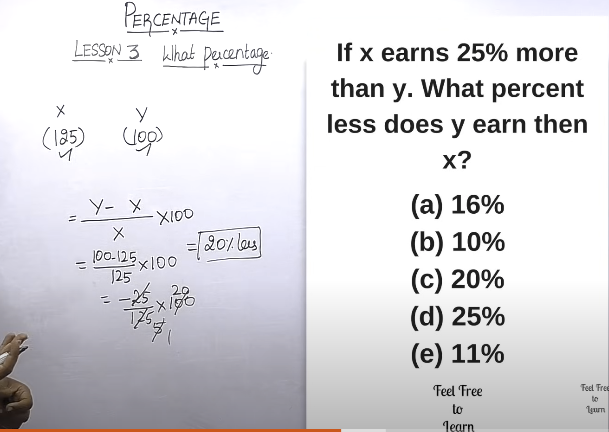 PERCENTAGE
LESSON 3 What Percentage
X Y
(125) (100)
= Y - X / X ×100
= 100-125 / 125 ×100 = 20% less
= -25 / 125 × 100
20
5 1
If x earns 25% more
than y. What percent
less does y earn then
x?
(a) 16%
(b) 10%
(c) 20%
(d) 25%
(e) 11%
Feel Free
to
Learn
Feel Free
to
Learn